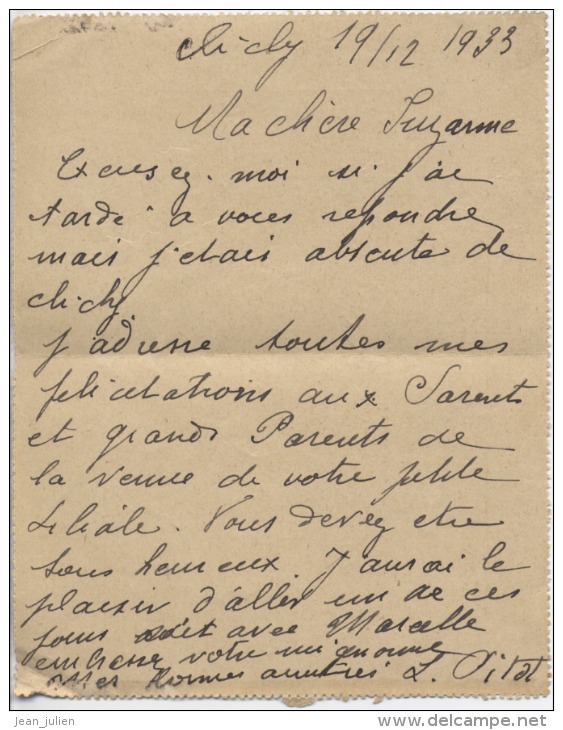 Clichy 19/12 1933
Ma chère Suzanne
Excusez-moi si j'ai
tardé a vous repondre
mais j'etais absente de
clichy
J'adresse toutes mes
felicitations aux Parents
et grands Parents de
la venue de votre petite
Liliale. Vous devez etre
tous heureux. J'aurai le
plaisir d'aller un de ces
jours avec Marcelle
embrasser votre mignonne
Mes bonnes amities L.
jean_julien
delcampe.net